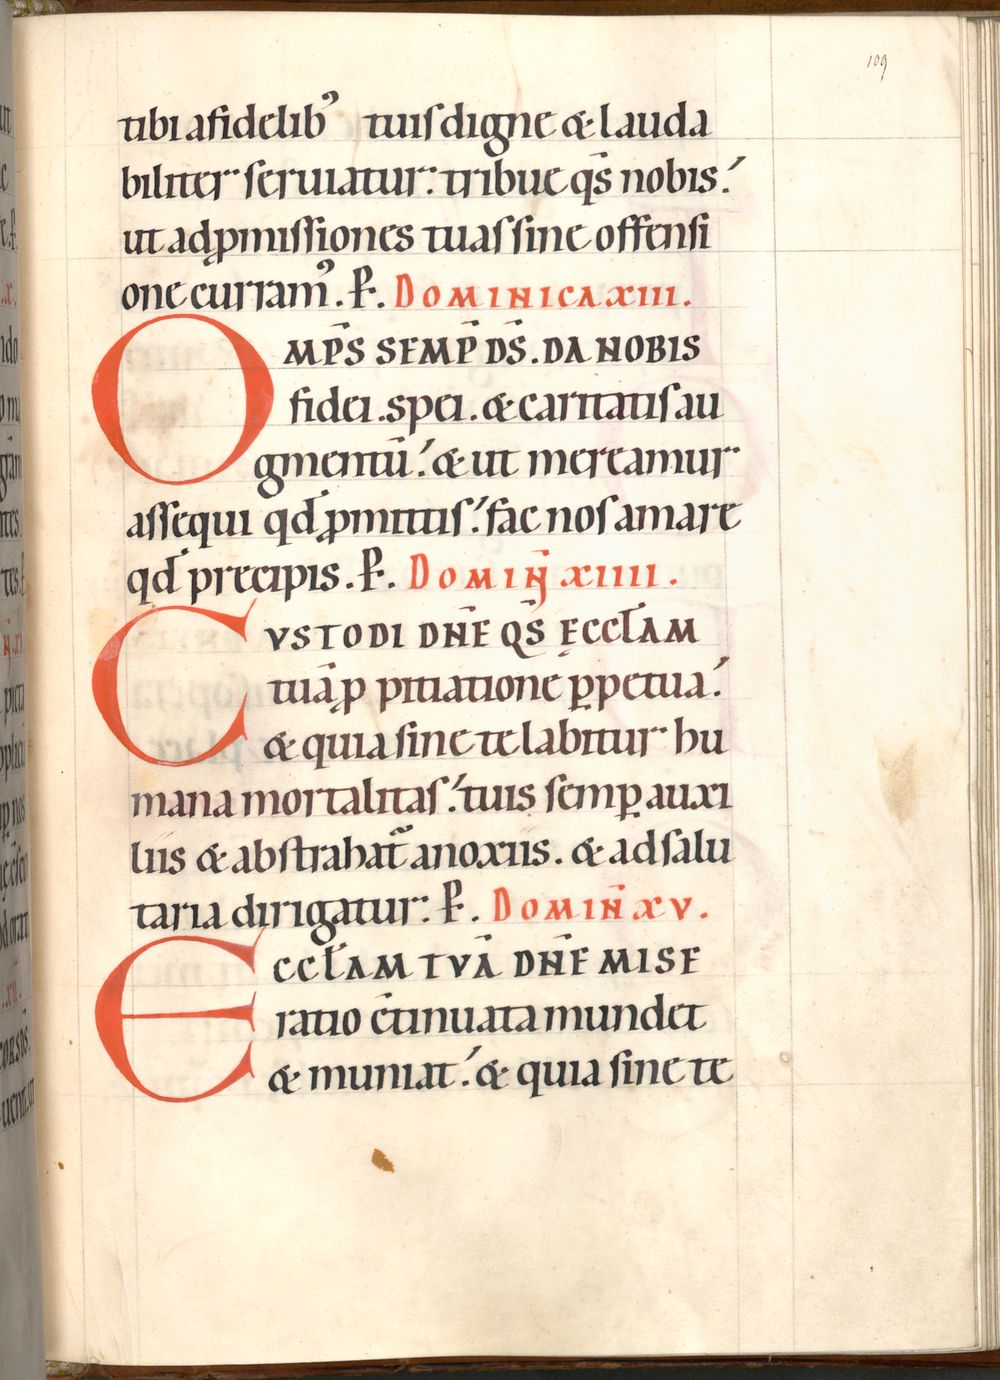 109
tibi a fidelib9 tuis digne & lauda
biliter seruiatur: tribue qs̄ nobis.
ut ad p̱missiones tuas sine offensi
one curram9. P̱. DOMINICA XIII.
OMP̄S SEMP̄ DS̄. DA NOBIS
fidei. spei. & caritatis au
gmentū. & ut mereamur
assequi qđ p̱mittis. fac nos amare
qđ precipis. P̱. DOMIN̄ XIIII.
CVSTODI DN̄E QS̄ ECCƚAM
tuā p̱ pitiatione p̱petua.
& quia sine te labitur hu
mana mortalitas. tuis semp̱ auxi
liis & abstrahat̃ a noxiis. & ad salu
taria dirigatur: P̱. DOMIN̄ XV.
ECCƚAM TVĀ DN̄E MISE
ratio c̄tinuata mundet
& muniat. & quia sine te